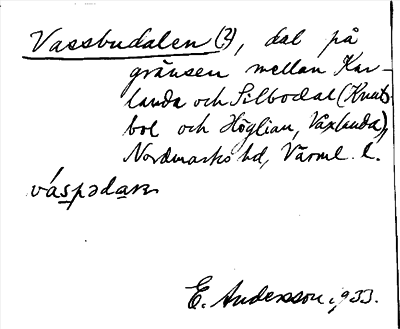 Vassbudalen (?), dal på
gränsen mellan Kar-
landa och Silbodal (Knuts-
bol och Höglian, Vaxlanda),
Nordmarks hd, Värml. l.
E. Andersson 1933.